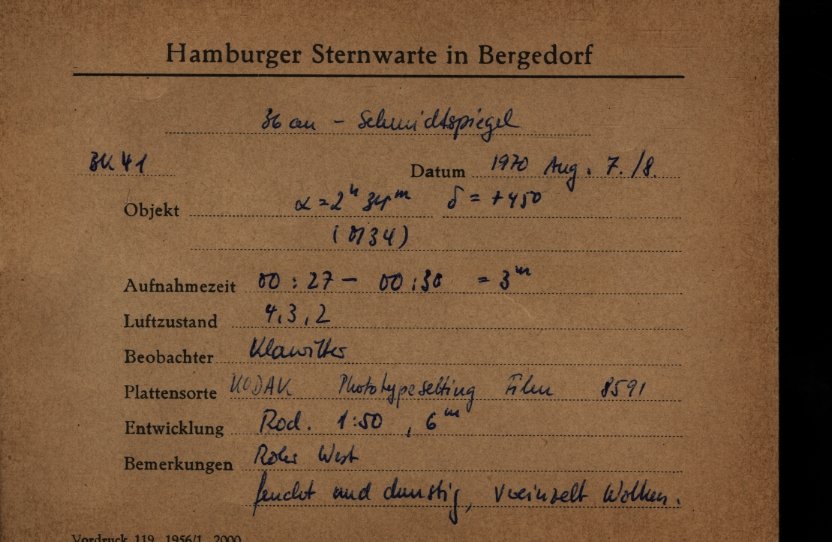 Hamburger Sternwarte in Bergedorf
36 cm - Schmidtspiegel
Datum 1970 Aug. 7./8.
Objekt α = 2ʰ 34ᵐ δ = +45°
(M34)
Aufnahmezeit 00:27 - 00:30 = 3ᵐ
Luftzustand 4,3,2
Beobachter Klawitter
Plattensorte KODAK Phototypesetting Film 8591
Entwicklung Rod. 1:50, 6ᵐ
Bemerkungen Rohr West
feucht und dunstig, vereinzelt Wolken.
Vordruck 119 1956/1 2000